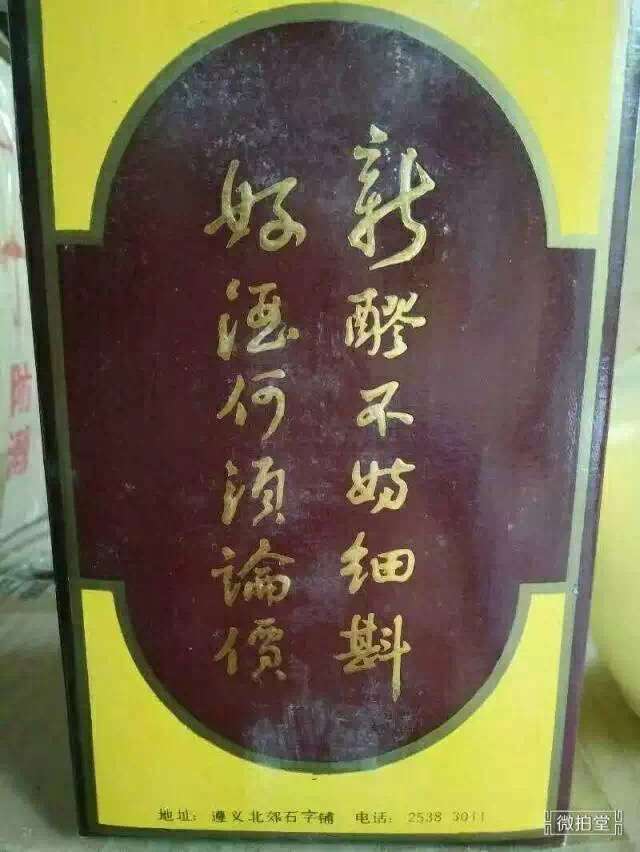 新醪不妨细斟
好酒何须論價
地址: 遵义北郊石字铺 电话: 2538 3011
防湿
微拍堂